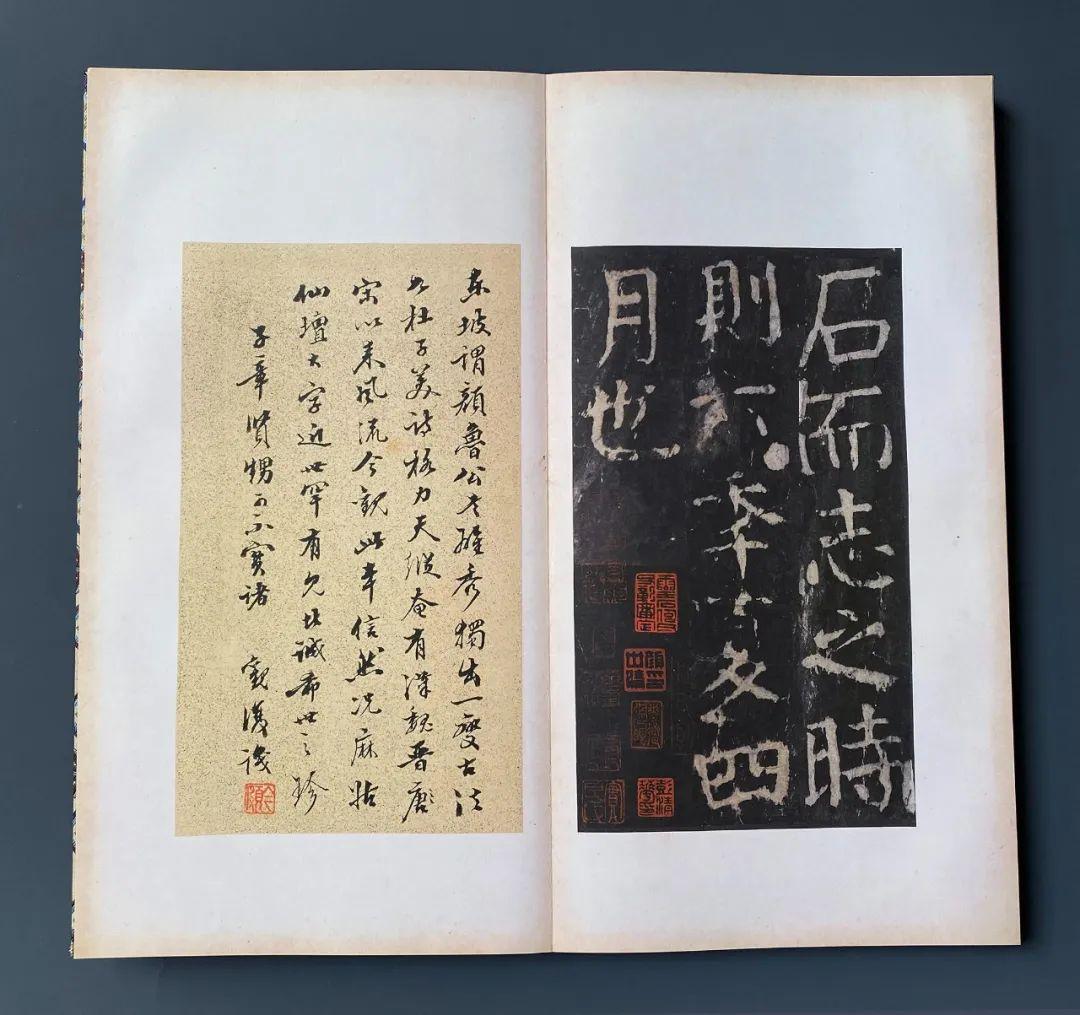 石而志之時
則六年夏四
月也
東坡謂顏魯公書雄秀獨出一變古法
如杜子美詩格力天縱奄有漢魏晉唐
宋以來風流今觀此本信然況麻姑
仙壇大字近世罕有此誠希世之珍
子章賢甥可不寶諸 觀復識